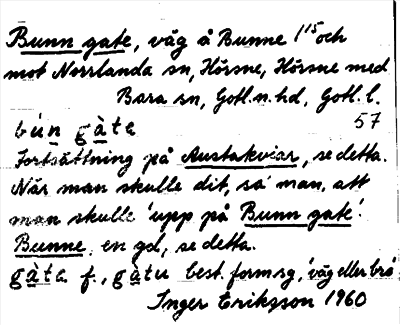 Bunn gate, väg å Bunne 1¹⁵ och
mot Norrlanda sn, Hörsne, Hörsne med
Bara sn, Gotl. n. hd, Gotl. l.
bún gàte 57
Fortsättning på Austakviar, se detta.
När man skulle dit, sa man, att
man skulle 'upp på Bunn gate'.
Bunne, en gd, se detta.
gàta f., gàtu best. form sg, 'väg eller bro'
Inger Eriksson 1960